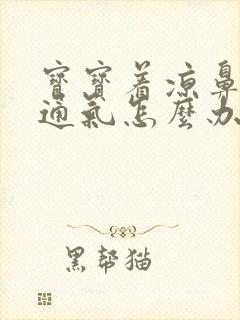 寶寶着涼鼻
通氣怎麼办
黑帮猫